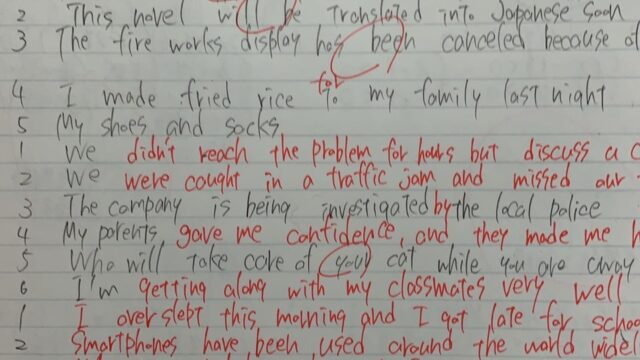 2 This novel will be translated into Japanese soon
3 The fire works display has been canceled because of
for
4 I made fried rice to my family last night
5 My shoes and socks
1 We didn't reach the problem for hours but discuss a
2 We were cought in a traffic jam and missed our
3 The company is being investigated by the local police
4 My parents gave me confidence, and they made me
5 Who will take care of your cat while you are away
6 I'm getting along with my classmates very well
1 I overslept this morning and I got late for school
2 Smartphones have been used around the world wide